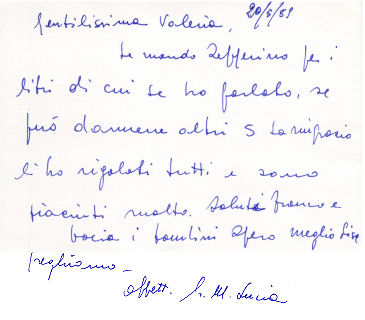 Gentilissima Valeria, 20/5/89
Le mando Zefferino per i
libri di cui le ho parlato, se
può darmene altri 5 la ringrazio
li ho regalati tutti e sono
piaciuti molto. Saluti Franco e
bacia i bambini spero meglio
preghiamo -
affett. Sr. M. Lucia